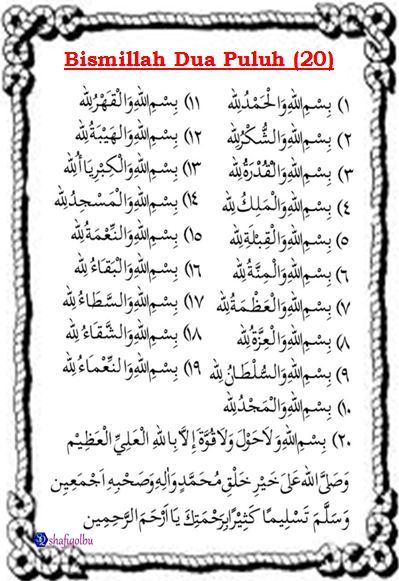 Bismillah Dua Puluh (20)
١) بِسْمِ اللهِ وَالْحَمْدُ لِلّٰهِ
٢) بِسْمِ اللهِ وَالشُّكْرُ لِلّٰهِ
٣) بِسْمِ اللهِ وَالْقُدْرَةُ لِلّٰهِ
٤) بِسْمِ اللهِ وَالْمَلِكُ لِلّٰهِ
٥) بِسْمِ اللهِ وَالْقِبْلَةِ لِلّٰهِ
٦) بِسْمِ اللهِ وَالْمِنَّةُ لِلّٰهِ
٧) بِسْمِ اللهِ وَالْعَظْمَةُ لِلّٰهِ
٨) بِسْمِ اللهِ وَالْعِزَّةُ لِلّٰهِ
٩) بِسْمِ اللهِ وَالسُّلْطَانُ لِلّٰهِ
١٠) بِسْمِ اللهِ وَالْمَجْدُ لِلّٰهِ
١١) بِسْمِ اللهِ وَالْقَهْرُ لِلّٰهِ
١٢) بِسْمِ اللهِ وَالْهَيْبَةُ لِلّٰهِ
١٣) بِسْمِ اللهِ وَالْكِبْرِيَاأُ لِلّٰهِ
١٤) بِسْمِ اللهِ وَالْمَسْجِدُ لِلّٰهِ
١٥) بِسْمِ اللهِ وَالنِّعْمَةُ لِلّٰهِ
١٦) بِسْمِ اللهِ وَالْبَقَاءُ لِلّٰهِ
١٧) بِسْمِ اللهِ وَالسَّطَاءُ لِلّٰهِ
١٨) بِسْمِ اللهِ وَالشَّقَاءُ لِلّٰهِ
١٩) بِسْمِ اللهِ وَالنِّعْمَاءُ لِلّٰهِ
٢٠) بِسْمِ اللهِ وَلَاحَوْلَ وَلَا قُوَّةَ إِلَّا بِاللهِ الْعَلِيِّ الْعَظِيْمِ
وَصَلَّى اللهُ عَلَى خَيْرِ خَلْقِ مُحَمَّدٍ وَاٰلِهِ وَصَحْبِهِ اَجْمَعِيْن
وَسَلَّمَ تَسْلِيْمًا كَثِيْرًا بِرَحْمَتِكَ يَا اَرْحَمَ الرَّحِمِيْن
shafiqolbu